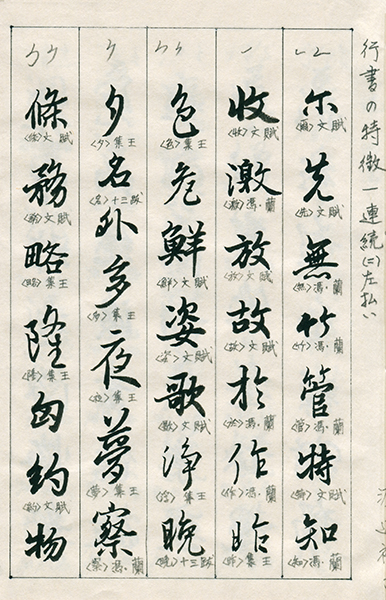 行書の特徴―連続(二)左払い
尓
〈爾〉文賦
先
〈先〉文賦
無
〈無〉馮・蘭
竹
〈竹〉馮・蘭
管
〈管〉馮・蘭
特
〈特〉文賦
知
〈知〉馮・蘭
收
〈收〉文賦
激
〈激〉馮・蘭
放
〈放〉文賦
故
〈故〉文賦
於
〈於〉馮・蘭
作
〈作〉馮・蘭
昨
〈昨〉集王
色
〈色〉集王
危
鮮
〈鮮〉文賦
姿
〈姿〉文賦
歌
〈歌〉文賦
浄
集王
晩
〈晩〉十三跋
夕
〈夕〉集王
名
〈名〉十三跋
外
多
〈多〉集王
夜
〈夜〉集王
夢
〈夢〉集王
察
〈察〉馮・蘭
條
〈條〉文賦
務
〈務〉文賦
略
〈略〉集王
隆
〈隆〉集王
匈
約
〈約〉文賦
物